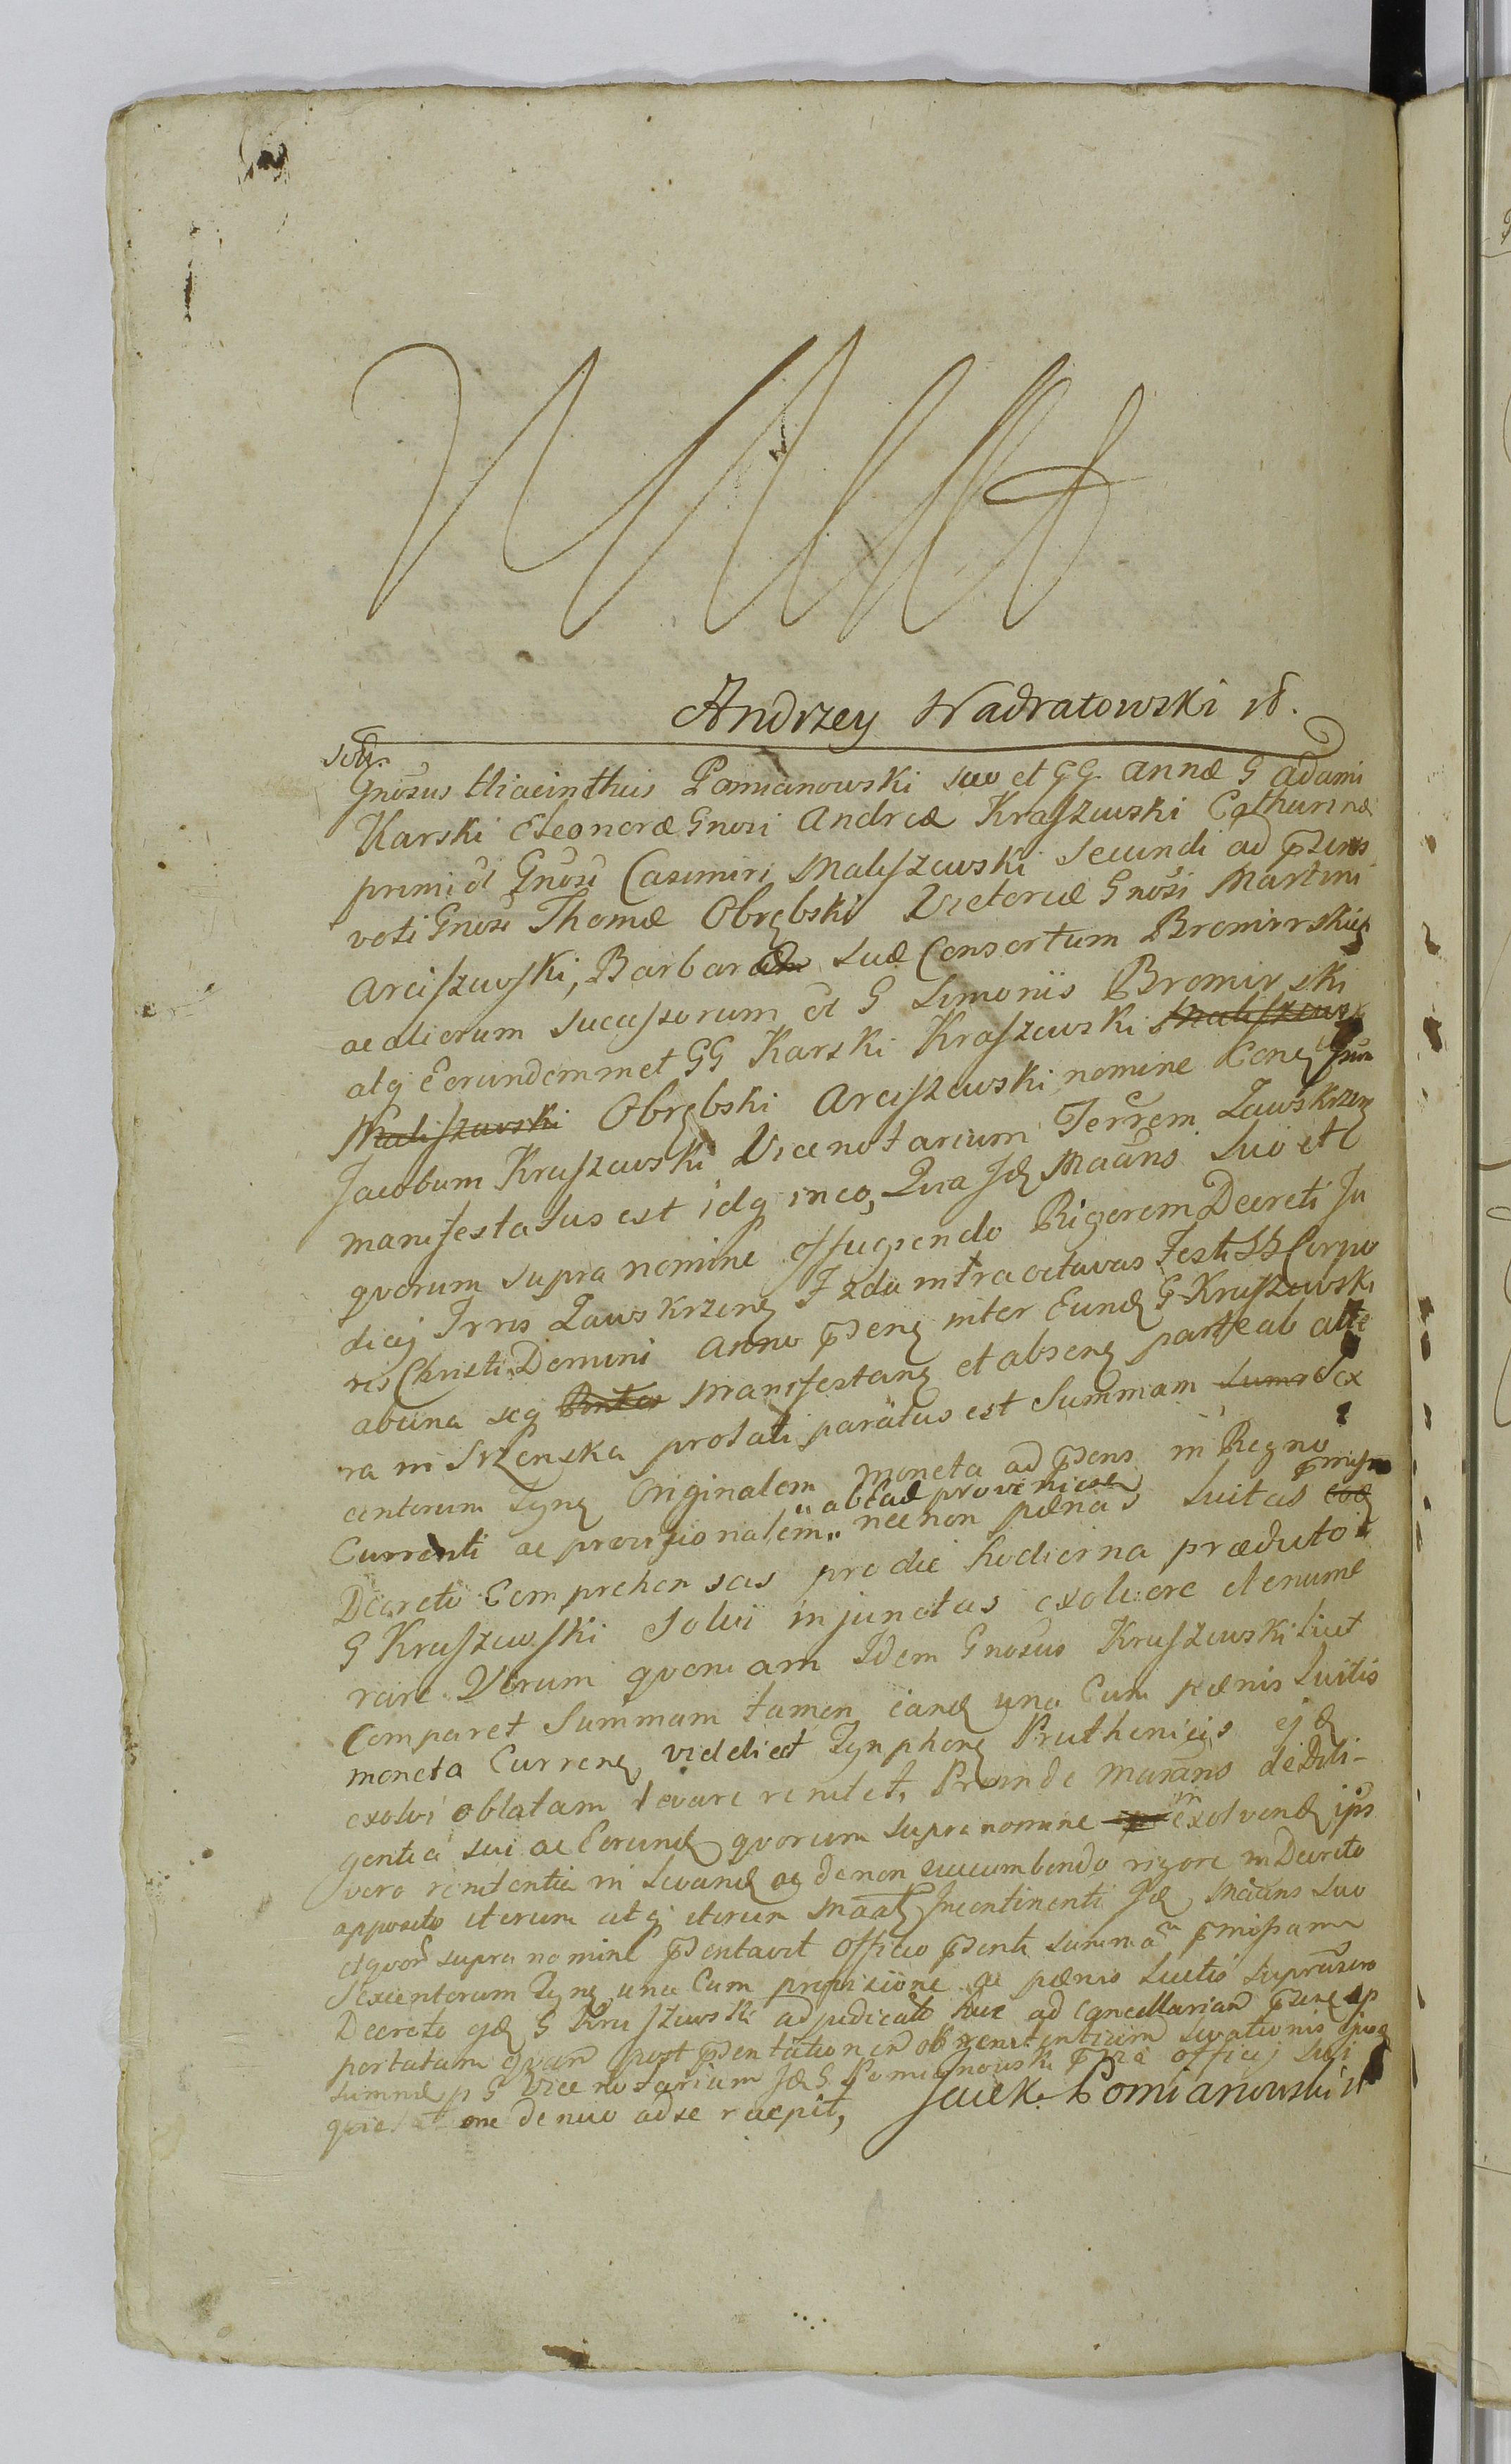 Andrzey Nadratowski
Gnosus Hiacinthus Pomianowski suo et GG. Annæ G Adami
Karski Eleonoræ Gnosi Andreæ Kraszewski Catharinæ
primi ol Gnosi Casimiri Maliszewski Secundi ad pñens
voti Gnosi Thomæ Obrębski Victoriæ Gnosi Martini
Arciszewski, Barbaræ suæ Consortum Bromirskich
ac aliorum Sucessorum ol G Simonis Bromirski
atq Eorundemmet GG Karski Kraszewski Maliszewsk
Maliszewski Obrębski Arciszewski nomine Conq
Jacobum Kruszewski Vicenotarium Terrem Zawskrzen
manifestatus est idq in eo, Qua Id Maans Suo et
quorum supra nomine effugiendo Rigorem Decreti Ju
dicij Trris Zawskrzen Fzda intra octavas Festi SS Corpo
ris Christi Domini Anno pñen inter Eund G Kruszewski
ab una seq manifestan et absen parte ab alte
ra in Srzenska prolati paratus est Summam Sex
centorum Tyn Originalem moneta ad pñens in Regno
Currenti ac provisionalem ab ea provenien necnon pænas luitas
Decreto Comprehensas pro die hodierna præducto
G Kruszewski solvi injunctas exolvere et enume
rare Verum quoniam Idem Gnosus Kruszewski licet
Comparet Summam tamen eand una Cum pænis luitis
moneta Curren videlicet Tynphon Pruthenicis ej d
exolvi oblatam levare renitet, Proinde Maans de dili-
gentia sui ac Eorund quorum supra nomine in exolvend ips
vero renitentia in levand ac de non succumbendo rigore in Decreto
apposito iterum atq iterum Maat Incontinenti Id Maans suo
et quor supra nomine pñentavit Officio pñenti summam pmissam
Sexcentorum Tyn una Cum provisione ac pænis luitis
Decreto ejd G Kruszewski adjudicato huc ad Cancellariam pñen ap
portatam quam post pñentationem ob renitentiam levationis
summæ p G Vicenotarium Id G Pomianowski officij sui
one denuo ad se recepit, Jacek Pomianowski